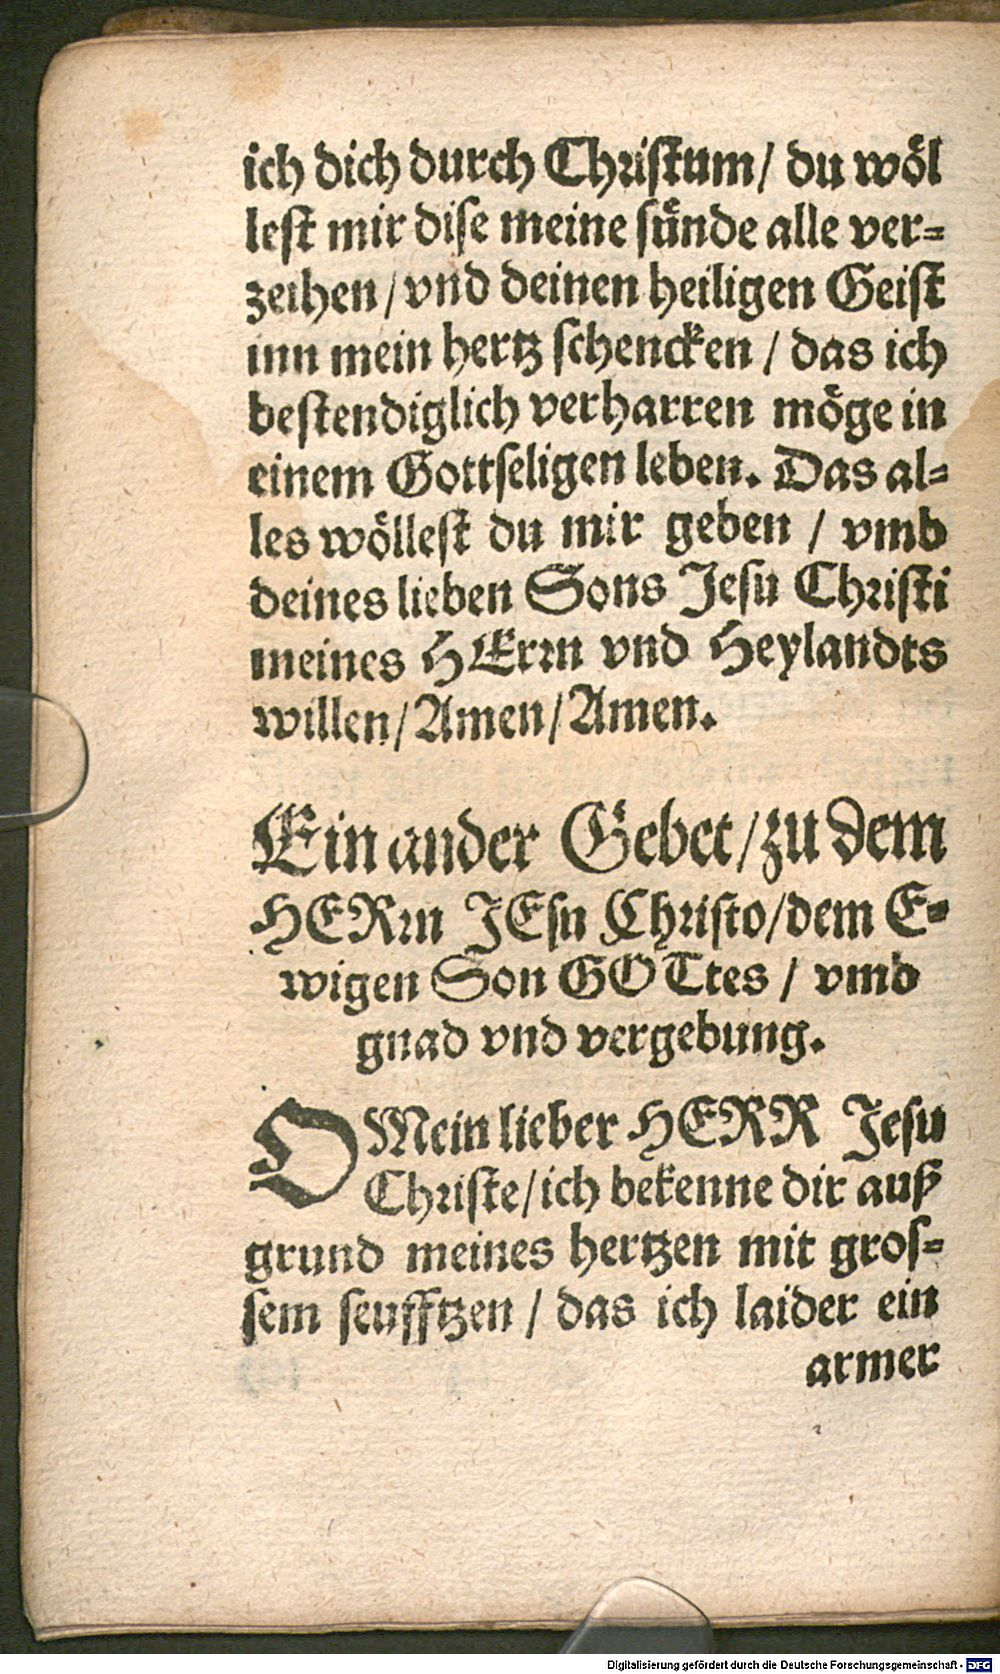 ich dich durch Christum/ du wöl
lest mir dise meine sünde alle ver=
zeihen/vnd deinen heiligen Geist
inn mein hertz schencken / das ich
bestendiglich verharren möge in
einem Gottseligen leben. Das al=
les wöllest du mir geben / vmb
deines lieben Sons Jesu Christi
meines HErrn vnd Heylandts
willen/Amen/Amen.
Ein ander Gebet/zu dem
HERrn JEsu Christo/dem E=
wigen Son GOTtes / vmb
gnad vnd vergebung.
O Mein lieber HERR Jesu
Christe/ich bekenne dir auß
grund meines hertzen mit gros=
sem seufftzen / das ich laider ein
armer
Digitalisierung gefördert durch die Deutsche Forschungsgemeinschaft - DFG